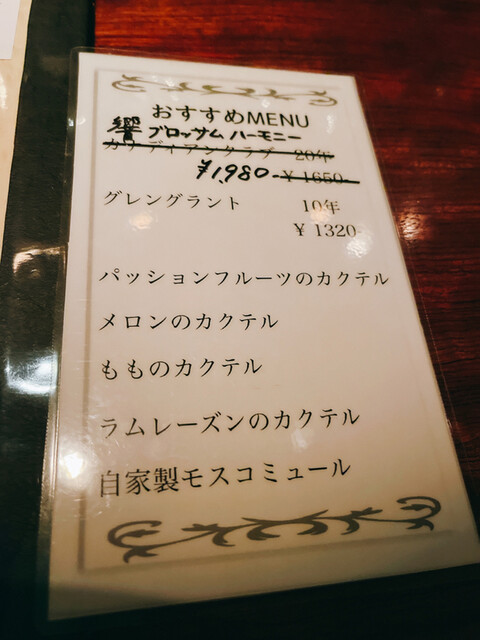 おすすめMENU
響 ブロッサム ハーモニー
カナディアンクラブ 20年
¥1,980- ¥1650-
グレングラント 10年
¥1320-
パッションフルーツのカクテル
メロンのカクテル
もものカクテル
ラムレーズンのカクテル
自家製モスコミュール